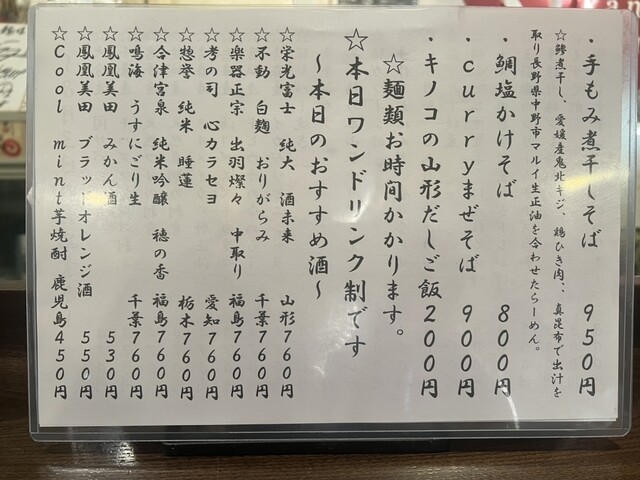 ・手もみ煮干しそば　９５０円
☆鯵煮干し、愛媛産鬼北キジ、鶏ひき肉、、真昆布で出汁を
取り長野県中野市マルイ生正油を合わせたらーめん。
・鯛塩かけそば　８００円
・ｃｕｒｒｙまぜそば　９００円
・キノコの山形だしご飯２００円
☆麺類お時間かかります。
☆本日ワンドリンク制です
～本日のおすすめ酒～
☆栄光冨士　純大　酒未来　山形７６０円
☆不動　白麹　おりがらみ　千葉７６０円
☆楽器正宗　出羽燦々　中取り　福島７６０円
☆孝の司　心カラセヨ　愛知７６０円
☆惣誉　純米　睡蓮　栃木７６０円
☆会津宮泉　純米吟醸　穂の香　福島７６０円
☆鳴海　うすにごり生　千葉７６０円
☆鳳凰美田　みかん酒　５３０円
☆鳳凰美田　ブラッドオレンジ酒　５５０円
☆Ｃｏｏｌ　ｍｉｎｔ芋焼酎　鹿児島４５０円